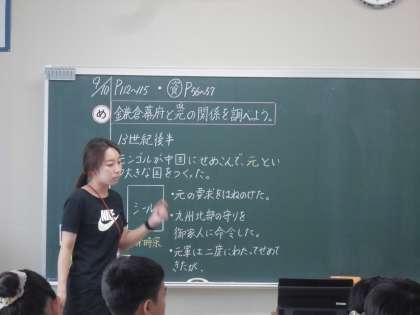 9/10 P112~115 ・ 資 P56~57
め 鎌倉幕府と元の関係を調べよう。
13世紀後半
モンゴルが中国にせめこんで、元とい
大きな国をつくった。
シール
・元の要求をはねのけた。
・九州北部の守りを
御家人に命令した。
・元軍は二度にわたってせめて
きたが、
時宗
NIKE